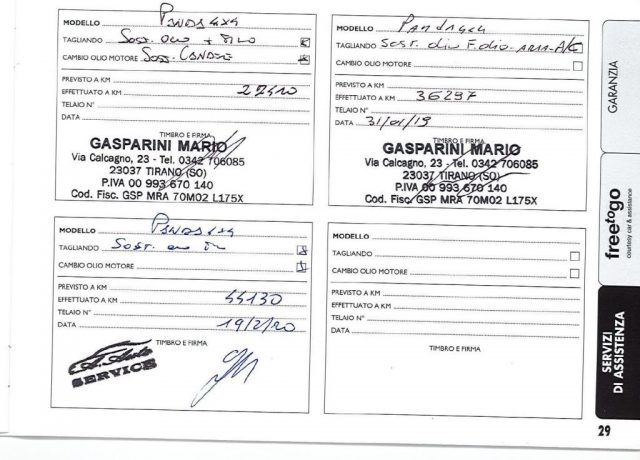 MODELLO Panda 4x4
TAGLIANDO Sost. olio + filo
CAMBIO OLIO MOTORE Soss.
PREVISTO A KM
EFFETTUATO A KM 27410
TELAIO N°
DATA
TIMBRO E FIRMA
GASPARINI MARIO
Via Calcagno, 23 - Tel. 0342 706085
23037 TIRANO (SO)
P.IVA 00 993 670 140
Cod. Fisc. GSP MRA 70M02 L175X
MODELLO Panda 4x4
TAGLIANDO Sost. olio F.olio-aria-A/C
CAMBIO OLIO MOTORE
PREVISTO A KM
EFFETTUATO A KM 36297
TELAIO N°
DATA 31/01/19
TIMBRO E FIRMA
GASPARINI MARIO
Via Calcagno, 23 - Tel. 0342 706085
23037 TIRANO (SO)
P.IVA 00 993 670 140
Cod. Fisc. GSP MRA 70M02 L175X
MODELLO Panda 4x4
TAGLIANDO Sost. olio
CAMBIO OLIO MOTORE
PREVISTO A KM
EFFETTUATO A KM 44130
TELAIO N°
DATA 19/2/20
TIMBRO E FIRMA
A. Auto
SERVICE
MODELLO
TAGLIANDO
CAMBIO OLIO MOTORE
PREVISTO A KM
EFFETTUATO A KM
TELAIO N°
DATA
TIMBRO E FIRMA
GARANZIA
freetogo
courtesy car & assistance
SERVIZI
DI ASSISTENZA
29